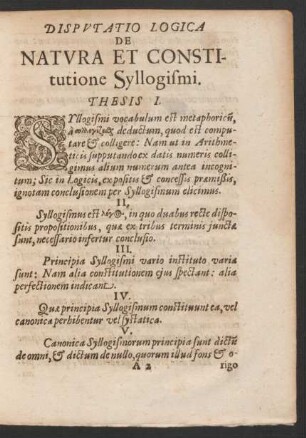 DISPVTATIO LOGICA
DE
NATVRA ET CONSTI-
tutione Syllogiſmi.
THESIS I.
SYllogiſmi vocabulum eſt metaphoricũ,
à deductum, quod eſt compu-
tare & colligere: Nam ut in Arithme-
ticis ſupputando ex datis numeris colli-
ginus alium numerum antea incogni-
tum; Sic in Logicis, expoſitis & conceſſis præmiſſis,
ignotam concluſionem per Syllogiſmum elicimus.
II.
Syllogiſmus eſt λόγ@, in quo duabus recte diſpo-
ſitis propoſitionibus, quæ ex tribus terminis junctæ
ſunt, neceſſario infertur concluſio.
III.
Principia Syllogiſmi vario inſtituto varia
ſunt: Nam alia conſtitutionem ejus ſpectant: alia
perfectionem indicant.
IV.
Quæ principia Syllogiſmum conſtituunt ea, vel
canonica perhibentur vel ſyſtatica.
V.
Canonica Syllogiſmorum principia ſunt dictũ
de omni, & dictum de nullo, quorum illud fons & o-
A 2 rigo